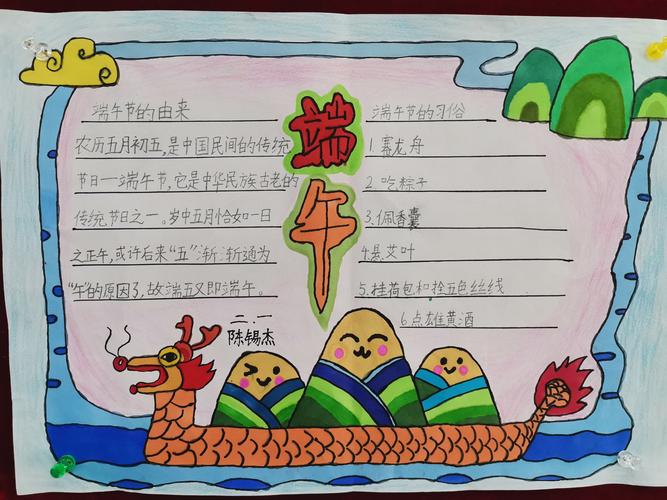 端午
端午节的由来
农历五月初五,是中国民间的传统
节日—端午节,它是中华民族古老的
传统节日之一。岁中五月恰如一日
之正午,或许后来“五”渐渐通为
“午”的原因了,故端五又即端午。
二.一
陈锡杰
端午节的习俗
1.赛龙舟
2.吃粽子
3.佩香囊
4.悬艾叶
5.挂荷包和拴五色丝线
6.点雄黄酒